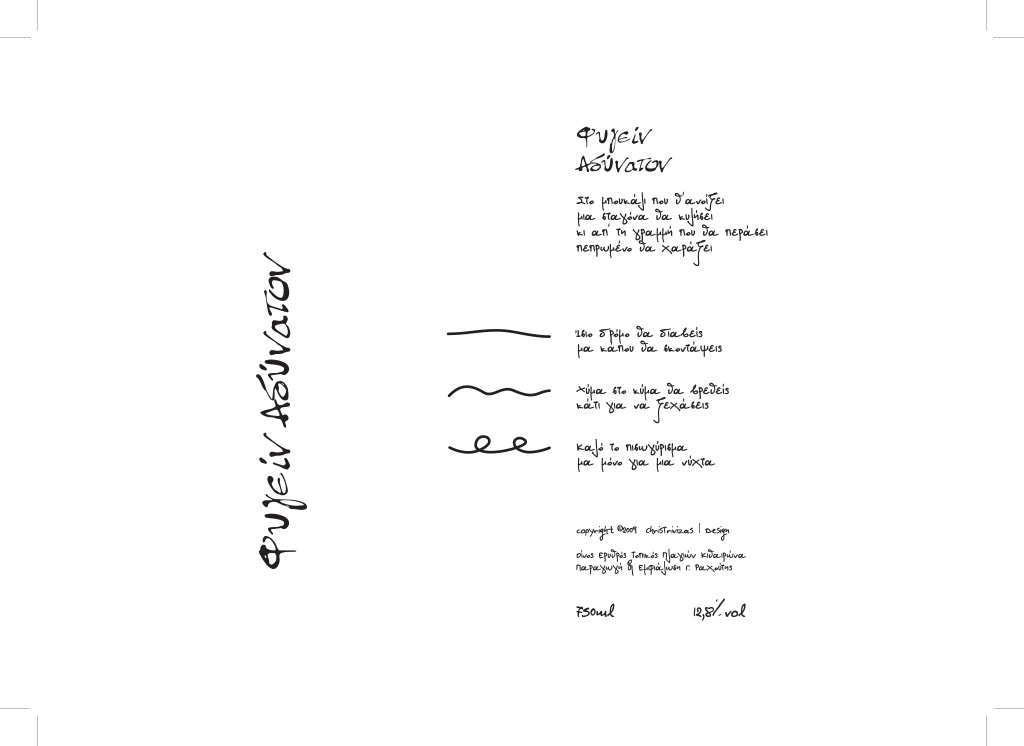 Φυγείν Αδύνατον
Φυγείν
Αδύνατον
Στο μπουκάλι που θ'ανοίξει
μια σταγόνα θα κυλήσει
κι απ' τη γραμμή που θα περάσει
πεπρωμένο θα χαράξει
Ίσιο δρόμο θα διαβείς
μα κάπου θα σκοντάψεις
Χύμα στο κύμα θα βρεθείς
κάτι για να ξεχάσεις
Καλό το πισωγύρισμα
μα μόνο για μια νύχτα
copyright ©2009 christrivizas | Design
Οίνος Ερυθρός Τοπικός Πλαγιών Κιθαιρώνα
Παραγωγή & Εμφιάλωση Γ. Ραχούτης
750ml 12,8% vol